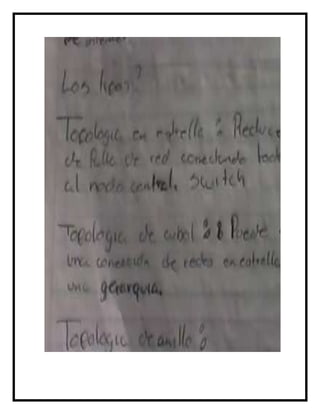 Los tipos?
Topologia en estrella : Reduce
de falla de red conectando
al nodo central. switch
Topologia de arbol : Puede
una conexión de redes en estrella
una gerarquia.
Topologia de anillo :